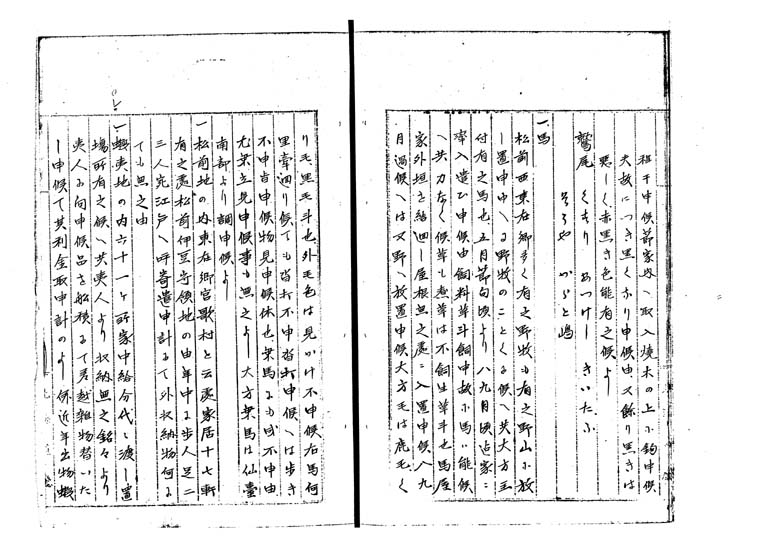 相干申候節家内へ取入焼木の上に釣申候
大故につき黒くなり申候由又飾り黒きは
悪しく赤黒き色能有之候よし
鷲尾 くもり あつけし きいたふ
そうや からと嶋
一馬
松前西東在郷多く有之野牧も有之野山に放
し置申候中にも野牧のことくも候へ共大方主
付有之馬也五月節句頃より八九月頃迄家に
牽入遣ひ申候由飼料草斗飼申故に馬は能候
へ共力なく候草も煮草は不飼生草斗也馬屋
家外垣を結廻し屋根無之處に入置申候八九
月過候へは又野へ放置申候大方毛は鹿毛く
り毛黒毛斗也外毛色は見かけ不申候右馬何
里牽廻り候ても沓打不申沓打申候へは歩き
不申旨申候物見申候休也乗馬にも成不申由
尤乗立見申候事も無之よし大方乗馬は仙臺
南部より調申候よし
一松前地の内東在郷宮歌村と云處家居十七軒
有之處松前伊豆守領地の由年中に歩人足二
三人宛江戸へ呼寄遣申計にて外収納物何に
ても無之由
一蝦夷地の内六十一ヶ所家中給分代に渡し置
場所有之候へ共夷人より収納無之銘々より
夷人に向申候品を船積にて差越雑物替いた
し申候て其利金取申計のよし係近年出物蝦